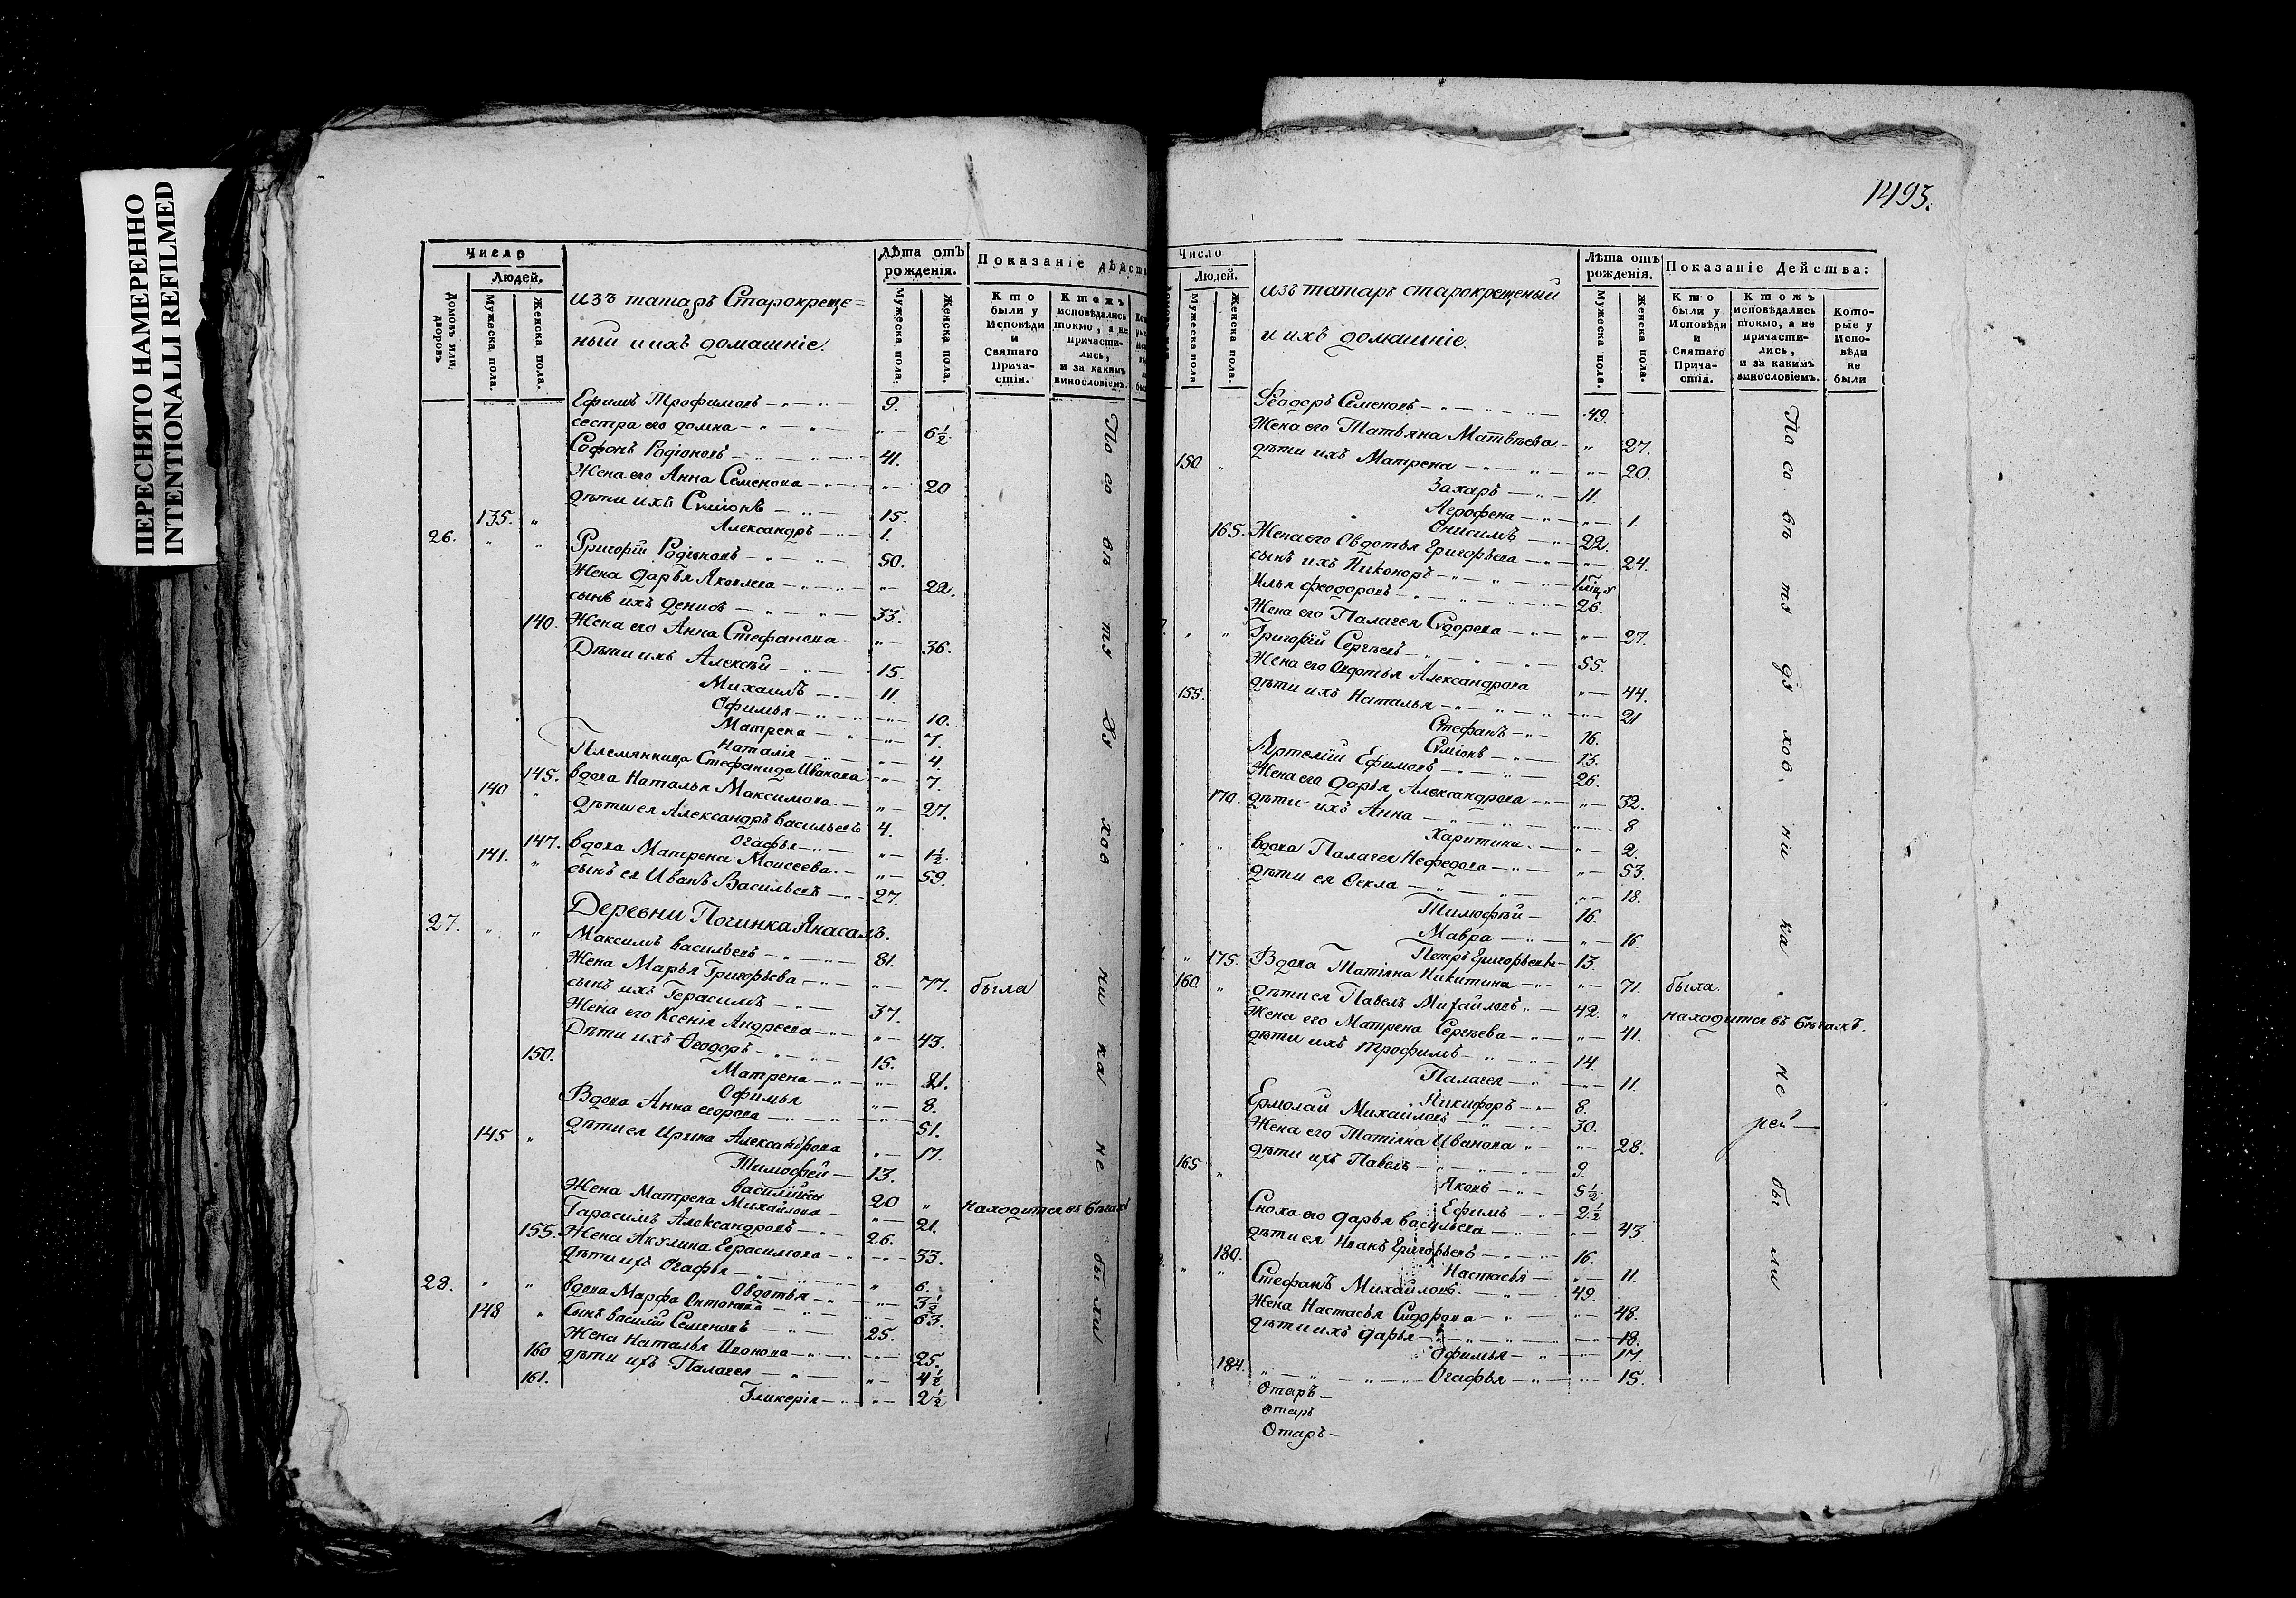 ПЕРЕСНЯТО НАМЕРЕННО
INTENTIONALLI REFILMED
Число
Людей.
Домовъ или дворовъ
Мужеска пола.
Женска пола.
изъ татаръ Старокреще=
ный и ихъ домашніе.
Лѣта отъ рожденія.
Мужеска пола.
Женска пола.
Показаніе дѣйст
Кто были у Исповѣди и Святаго Причастія.
Ктожъ исповѣдались токмо, а не причастились, и за какимъ винословіемъ.
Ефимъ Трофимовъ 9.
сестра его домна 6½
Софонъ Родіоновъ 41.
Жена его Анна Семенова 20
дѣти ихъ Сѵміонъ 15.
135. Александръ 1.
26. Григорій Родіоновъ 50.
Жена Дарья Яковлева 22.
сынъ ихъ денисъ 33.
140. Жена его Анна Стефанова 36.
Дѣти ихъ Алексѣй 15.
Михаилъ 11.
Офимья 10.
Матрена 7.
Наталія 4.
Племянница Стефанида Иванова 7.
145. вдова Наталья Максимова 27.
140 дѣти ея Александръ васильевъ 4.
Огафья 1½
147. вдова Матрена Моисеева 59.
141. сынъ ея Иванъ Васильевъ 27.
Деревни Починка Янасалъ.
27. Максимъ васильевъ 81.
Жена Марья Григорьева 77. была
сынъ ихъ Герасимъ 37.
Жена его Ксенія Андреева 43.
Дѣти ихъ Ѳеодоръ 15.
150. Матрена 21.
Офимья 8.
Вдова Анна егорова 51.
дѣти ея Ирина Александрова 17.
145 Тимофей 13.
василій 20 находится въ бѣгахъ
Жена Матрена Михайлова 21.
Гарасимъ Александровъ 26.
155. Жена Акулина Герасимова 33.
дѣти ихъ Огафья 6.
Овдотья 3½
28. вдова Марфа Онтонова 63.
148 Сынъ василій Семеновъ 25.
Жена Наталья Иванова 25.
160 дѣти ихъ Палагея 4½
161. Гликерія 2½
По со бъ ту ду хов ни ка не бы ли
1493.
Число
Людей.
Мужеска пола
Женска пола.
изъ татаръ старокрещеный
и ихъ домашніе.
Лѣта отъ рожденія.
Мужеска пола.
Женска пола.
Показаніе Действа:
Кто были у Исповѣди и Святаго Причастія.
Ктожъ исповѣдались токмо, а не причастились, и за какимъ винословіемъ.
Которые у Исповѣди не были
Ѳеодоръ Семеновъ 49.
Жена его Татьяна Матвѣева 27.
150 дѣти ихъ Матрена 20.
Захаръ 11.
Агрофена 1.
Онисимъ 22.
165. Жена его Овдотья Григорьева 24.
сынъ ихъ Никоноръ
Илья Феодоровъ 26.
Жена его Палагея Сѵдорова 27.
Григорій Сергѣевъ 55.
Жена его Овдотья Александрова 44.
155. дѣти ихъ Наталья 21
Стефанъ 16.
Сѵміонъ 13.
Артемій Ефимовъ 26.
Жена его Дарья Александрова 32.
170. дѣти ихъ Анна 8
Харитина 2.
вдова Палагея Нефедова 53.
дѣти ея Ѳекла 18.
Тимофѣй 16.
Мавра 16.
Петръ Григорьевъ 13.
175. Вдова Татіяна Никитина 71. была
160. дѣти ея Павелъ Михайловъ 42. находится въ бѣгахъ.
Жена его Матрена Сергѣева 41.
дѣти ихъ трофимъ 14.
Палагея 11.
Никифоръ 8.
Ермолай Михайловъ 30.
Жена его Татіяна Иванова 28.
165 дѣти ихъ Павелъ 9.
Яковъ 5½
Ефимъ 2½
Сноха его Дарья васильева 43.
дѣти ея Иванъ Григорьевъ 16.
180. Настасья 11.
Стефанъ Михайловъ 49.
Жена Настасья Сидорова 48.
дѣти ихъ Дарья 18.
Офимья 17.
184. Огафья 15.
Отаръ
Отаръ
Отаръ
По со бъ ту ду хов. ни ка не бы ли